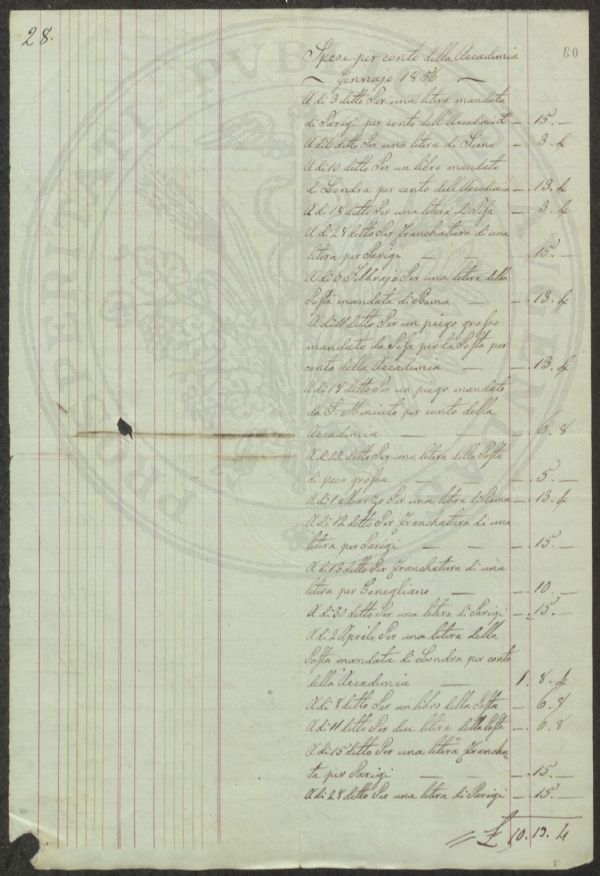 28.
80
Spese per conto della Accademia
Gennajo 1856
A di 3 detto Per una letera mandata
di Parigi per conto dell'Accademia — . 15. —
A di 6 detto Per una letera di Siena — . 3. 4
A di 10 detto Per un libro mandato
di Londra per conto dell'Accademia — . 13. 4
A di 18 detto Per una letera di Pisa — . 3. 4
A di 28 detto Per franchatura di una
letera per Parigi — — . 15. —
A di 6 Febbrajo Per una letera della
Posta mandata di Roma — . 13. 4
A di 11 detto Per un piego grosso
mandato da Pisa per la Posta per
conto della Accademia — — . 13. 4
A di 18 detto Per un piego mandato
da S. Miniato per conto della
Accademia — — — . 6. 8
A di 22 detto Per una letera della Posta
di peso grossa — — — . 5. —
A di 1 Marzo Per una letera di Roma — . 13. 4
A di 12 detto Per franchatura di una
letera per Parigi — — — . 15. —
A di 13 detto Per franchatura di una
letera per Conegliano — — . 10. —
A di 30 detto Per una letera di Parigi — . 15. —
A di 2 Aprile Per una letera della
Posta mandata di Londra per conto
della Accademia — 1. 8. 4
A di 8 detto Per un libro della Posta — . 6. 8
A di 11 detto Per due letere della Posta — . 6. 8
A di 15 detto Per una letera francha-
ta per Parigi — — — . 15. —
A di 28 detto Per una letera di Parigi — . 15. —
£ 10. 13. 4